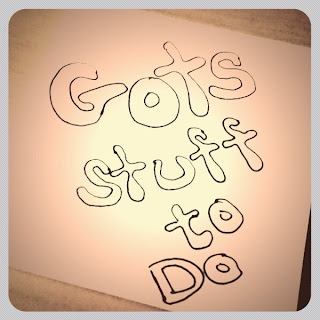 Gots
stuff
to
Do